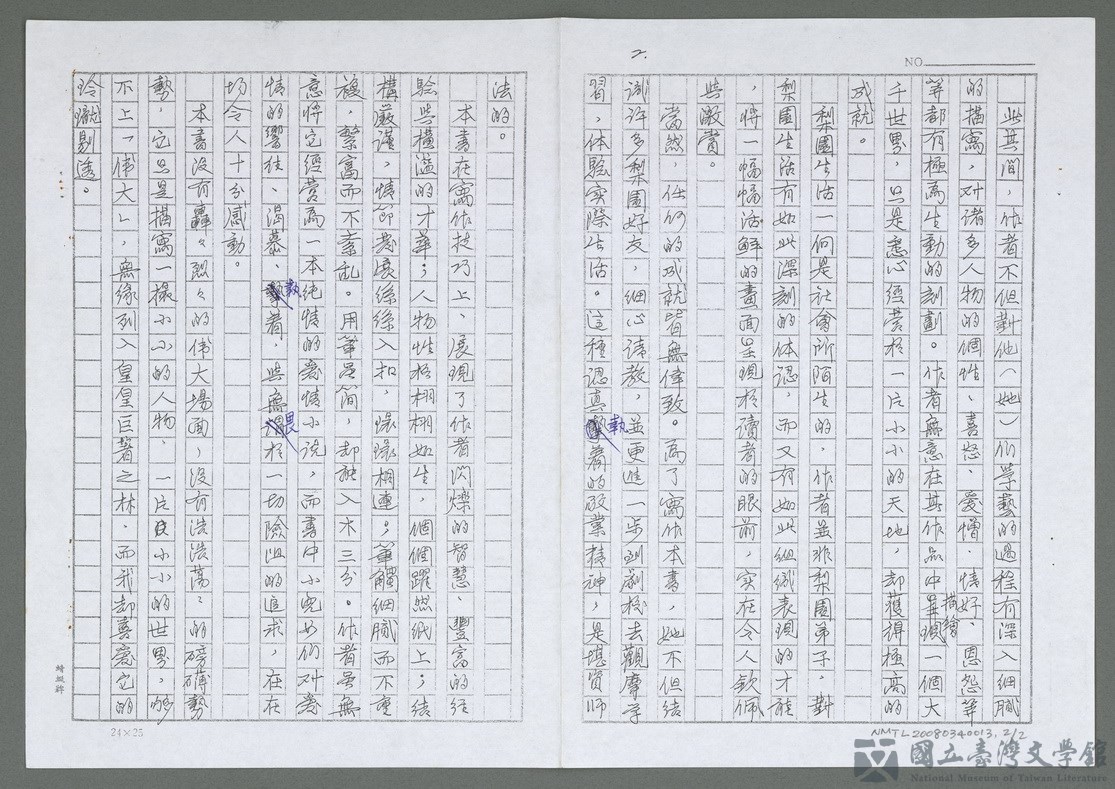 2.
NO
此其間，作者不但對他（她）们學藝的過程有深入細膩
的描寫，对诸多人物的個性、喜怒、爱憎、情好、恩怨等
等都有極為生動的刻劃。作者無意在其作品中描繪一個大
千世界，只是悉心經营於一片小小的天地，却獲得極高的
成就。
梨園生活一向是社會所陌生的，作者虽非梨園弟子，對
梨園生活有如此深刻的体認，而又有如此组織表现的才能
，将一幅幅活鮮的畫面呈现於讀者的眼前，实在令人欽佩
些激賞。
當然，任何的成就皆無倖致。為了寫作本書，她不但结
識许多梨園好友，细心请教，並更進一步到劇校去觀摩学
習，体驗实際生活。這種認真執著的敬業精神，是堪資师
法的。
本書在寫作技巧上、展现了作者闪爍的智慧、豐富的经
驗些橫溢的才華；人物性格栩栩如生，個個躍然纸上；结
構嚴谨，情節發展絲絲入扣，環環相連；筆觸细膩而不重
複，繁富而不紊乱。用筆虽简，却能入木三分。作者虽無
意将它經营為一本纯情的爱情小说，而書中小兒女们对爱
情的響往、渴慕、執著，與無畏於一切險阻的追求，在在
均令人十分感動。
本書没有轟々烈々的偉大場面，没有浩浩荡々的磅礡勢
勢，它只是描寫一撮小小的人物、一片小小的世界，夠
不上「偉大」，無緣列入皇皇巨著之林，而我却喜爱它的
玲瓏剔透。
蜻蜓牌
24×25
NMTL20080340013, 2/2
國立臺灣文學館
National Museum of Taiwan Literature